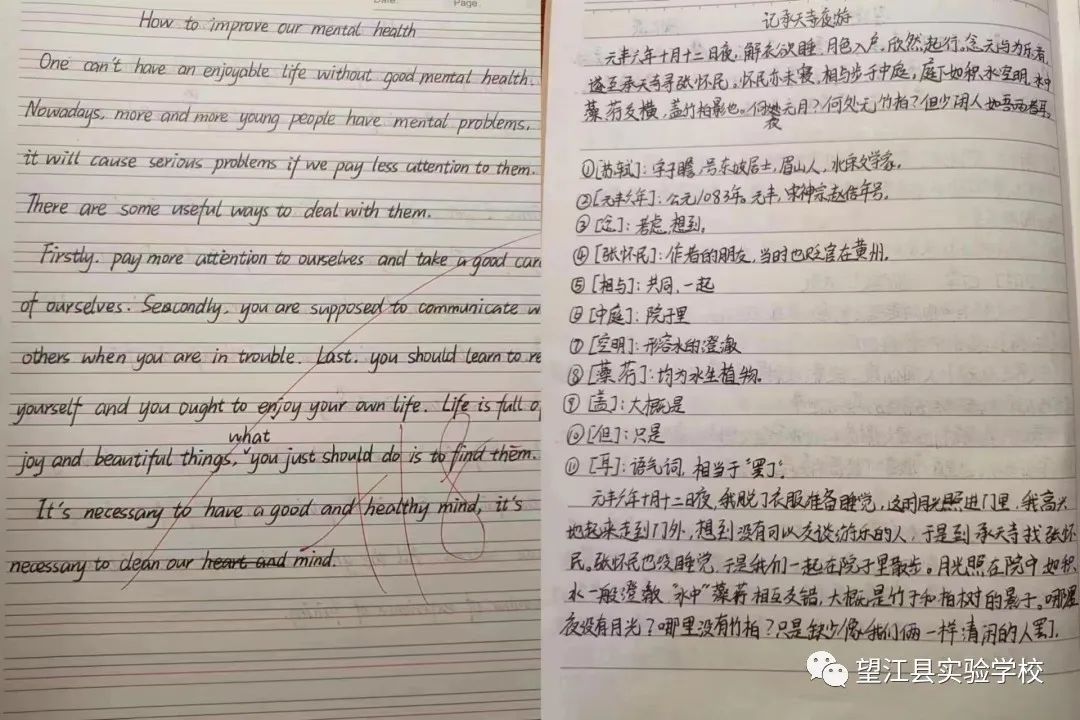 Date.
Page
How to improve our mental health
One can't have an enjoyable life without good mental health.
Nowadays, more and more young people have mental problems.
it will cause serious problems if we pay less attention to them.
There are some useful ways to deal with them.
Firstly, pay more attention to ourselves and take a good care
of ourselves. Secondly, you are supposed to communicate w
others when you are in trouble. Last, you should learn to re
yourself and you ought to enjoy your own life. Life is full o
what
joy and beautiful things, you just should do is to find them.
It's necessary to have a good and healthy mind, it's
necessary to clean our heart and mind.
记承天寺夜游
元丰六年十月十二日夜,解衣欲睡,月色入户,欣然起行。念无与为乐者,
遂至承天寺寻张怀民。怀民亦未寝,相与步于中庭。庭下如积水空明,水中
藻荇交横,盖竹柏影也。何夜无月?何处无竹柏?但少闲人如吾两者耳。
①[苏轼]:字子瞻,号东坡居士,眉山人,北宋文学家。
②[元丰六年]:公元1083年。元丰,宋神宗赵佶年号。
③[念]:考虑,想到。
④[张怀民]:作者的朋友,当时也贬官在黄州。
⑤[相与]:共同,一起
⑥[中庭]:院子里
⑦[空明]:形容水的澄澈
⑧[藻荇]:均为水生植物。
⑨[盖]:大概是
⑩[但]:只是
⑪[耳]:语气词,相当于“罢了”。
元丰六年十月十二日夜,我脱了衣服准备睡觉,这时月光照进门里,我高兴
地起来走到门外,想到没有可以交谈游乐的人,于是到承天寺找张怀
民。张怀民也没睡觉,于是我们一起在院子里散步。月光照在院中如积
水一般澄澈“水中”藻荇相互交错,大概是竹子和柏树的影子。哪里
夜没有月光?哪里没有竹柏?只是缺少像我们俩一样清闲的人罢了。
望江县实验学校